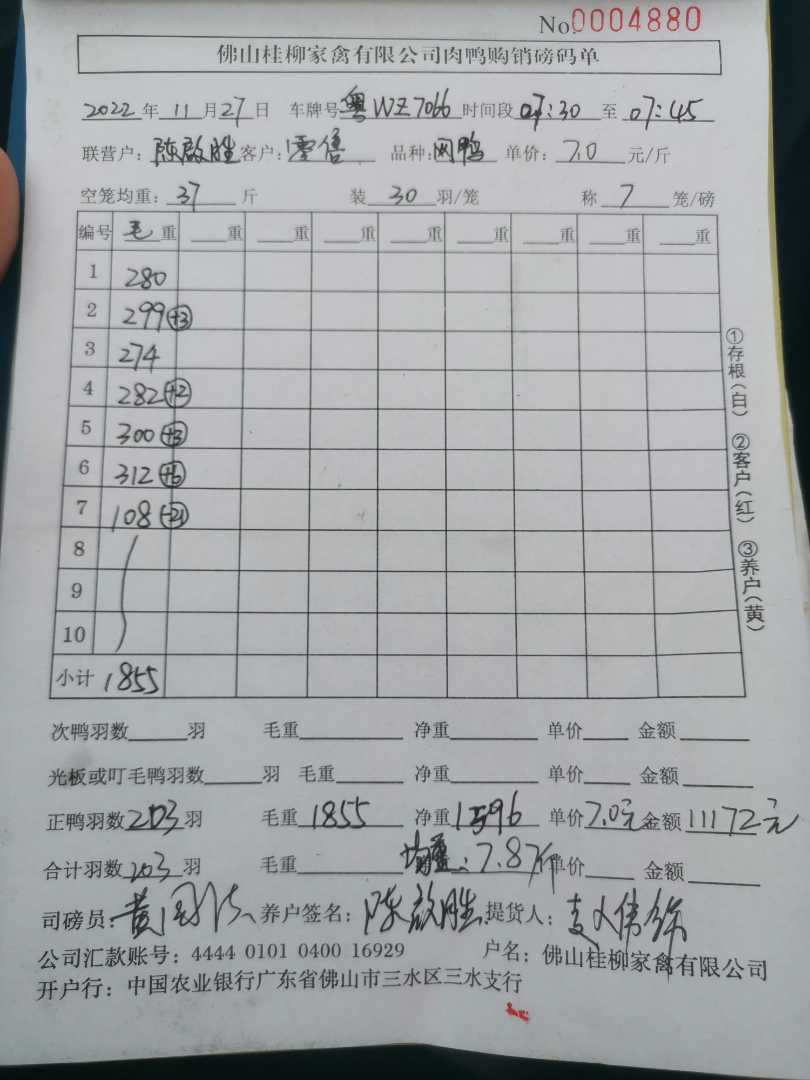 No.0004880
佛山桂柳家禽有限公司肉鸭购销磅码单
2022年11月27日 车牌号粤WZ7066时间段07:30至07:45
联营户:陈啟胜客户:零售 品种:肉鸭 单价:7.0元/斤
空笼均重:37斤 装30羽/笼 称7笼/磅
编号 毛重 重 重 重 重 重 重 重
1 280
2 299 +3
3 274
4 282 +2
5 300 +3
6 312 +6
7 108 -21
8
9
10
小计 1855
①存根(白) ②客户(红) ③养户(黄)
次鸭羽数 羽 毛重 净重 单价 金额
光板或叮毛鸭羽数 羽 毛重 净重 单价 金额
正鸭羽数203羽 毛重1855 净重1596 单价7.0元金额11172元
合计羽数203羽 毛重 均重:7.87斤单价 金额
司磅员: 养户签名:陈啟胜 提货人:
公司汇款账号:4444 0101 0400 16929 户名:佛山桂柳家禽有限公司
开户行:中国农业银行广东省佛山市三水区三水支行